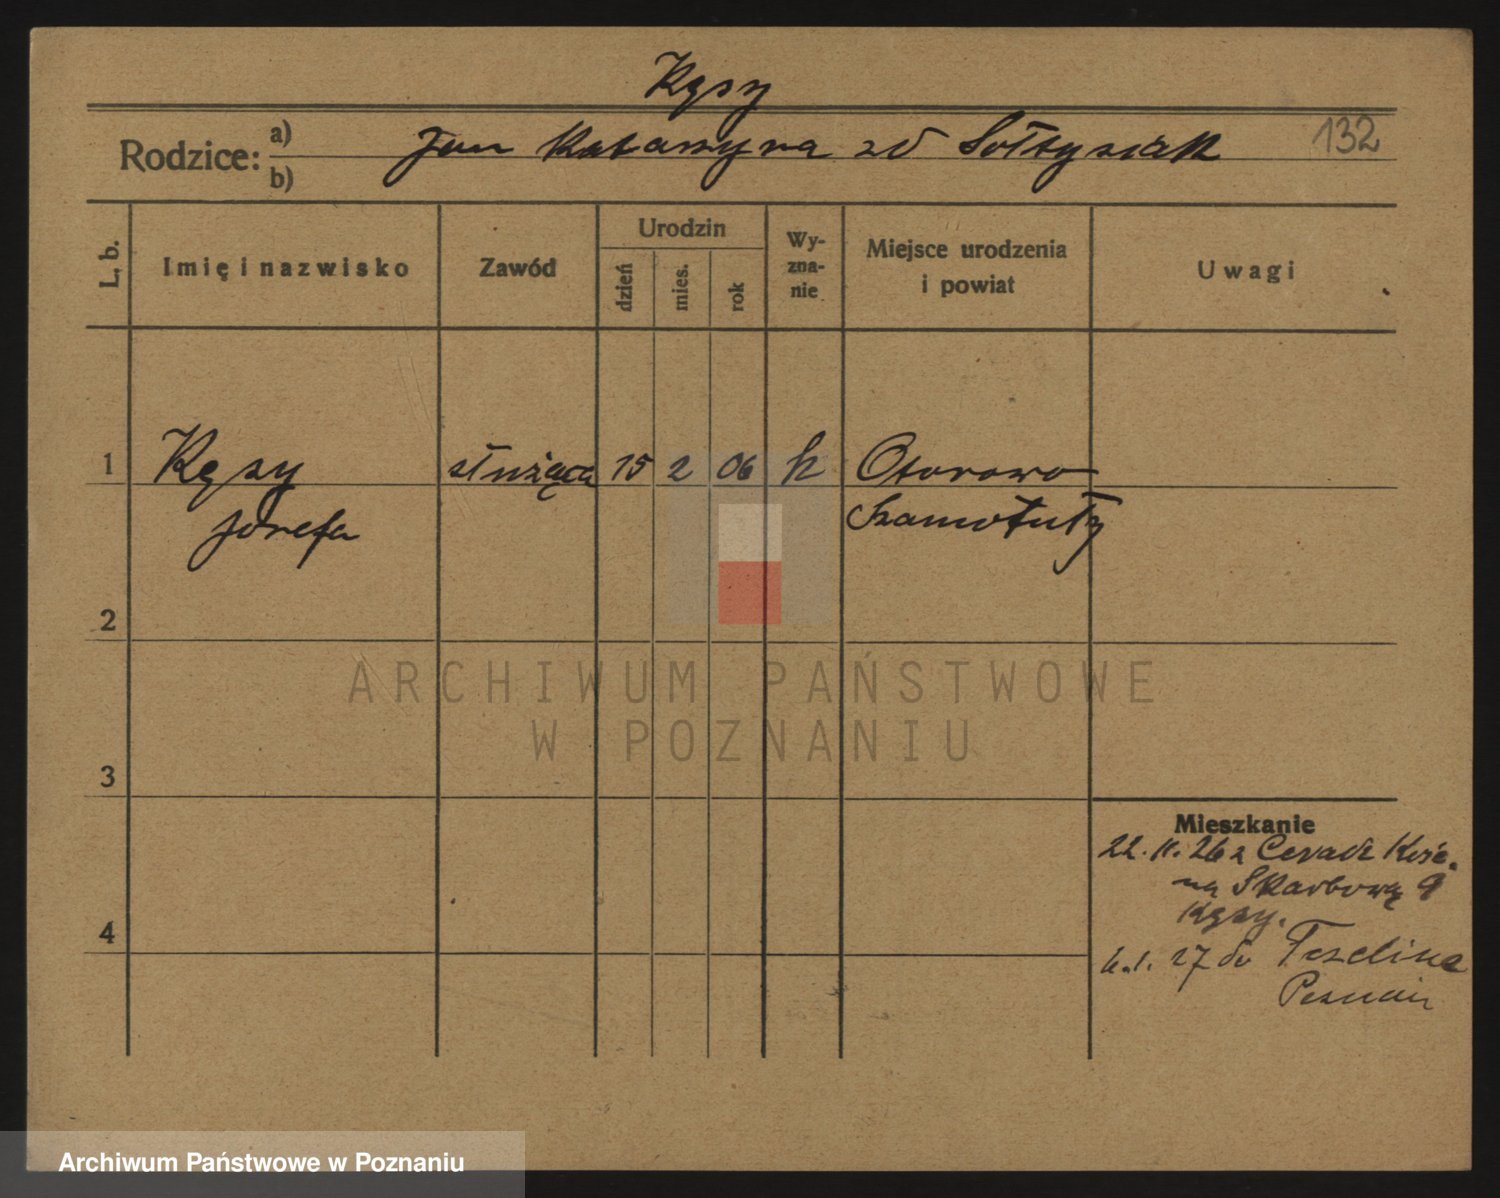 Kęsy
Rodzice: a) b) Jan Katarzyna zd Sołtysiak 132
L. b. Imię i nazwisko Zawód Urodzin dzień mies. rok Wy-zna-nie Miejsce urodzenia i powiat Uwagi
1 Kęsy służąca 15 2 06 k Otorowo
Józefa Szamotuły
2
ARCHIWUM PAŃSTWOWE
W POZNANIU
3
Mieszkanie
22. 11. 26 z Ceradz Kość.
na Skarbową 9
Kęsy.
4
1. 27 do
Poznań
Archiwum Państwowe w Poznaniu